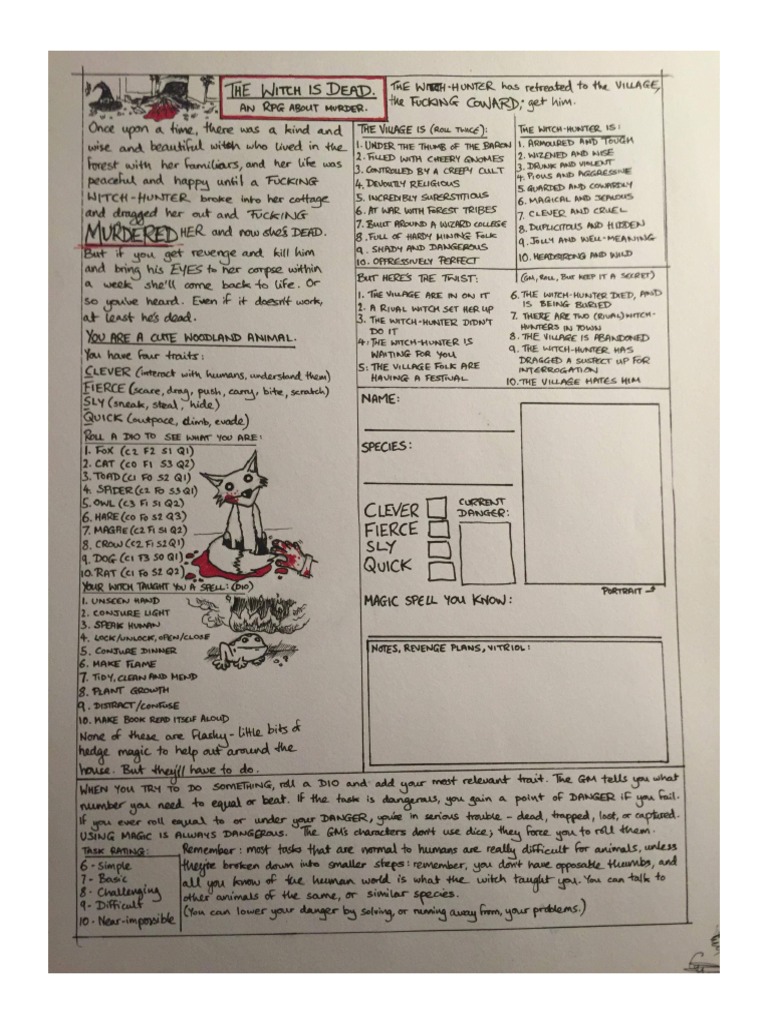 THE WITCH IS DEAD.
AN RPG ABOUT MURDER.
THE WITCH-HUNTER has retreated to the VILLAGE,
the FUCKING COWARD; get him.
Once upon a time, there was a kind and
wise and beautiful witch who lived in the
forest with her familiars, and her life was
peaceful and happy until a FUCKING
WITCH-HUNTER broke into her cottage
and dragged her out and FUCKING
MURDERED HER and now she's DEAD.
But if you get revenge and kill him
and bring his EYES to her corpse within
a week she'll come back to life. Or
so you've heard. Even if it doesn't work,
at least he's dead.
YOU ARE A CUTE WOODLAND ANIMAL.
You have four traits:
CLEVER (interact with humans, understand them)
FIERCE (scare, drag, push, carry, bite, scratch)
SLY (sneak, steal, hide)
QUICK (outpace, climb, evade)
ROLL A D10 TO SEE WHAT YOU ARE:
1. FOX (C2 F2 S1 Q1)
2. CAT (C0 F1 S3 Q2)
3. TOAD (C1 F0 S2 Q1)
4. SPIDER (C2 F0 S3 Q1)
5. OWL (C3 F1 S1 Q2)
6. HARE (C0 F0 S2 Q3)
7. MAGPIE (C2 F1 S1 Q2)
8. CROW (C2 F1 S2 Q1)
9. DOG (C1 F3 S0 Q1)
10. RAT (C1 F0 S2 Q2)
YOUR WITCH TAUGHT YOU A SPELL: (D10)
1. UNSEEN HAND
2. CONJURE LIGHT
3. SPEAK HUMAN
4. LOCK/UNLOCK, OPEN/CLOSE
5. CONJURE DINNER
6. MAKE FLAME
7. TIDY, CLEAN AND MEND
8. PLANT GROWTH
9. DISTRACT/CONFUSE
10. MAKE BOOK READ ITSELF ALOUD
None of these are flashy - little bits of
hedge magic to help out around the
house. But they'll have to do.
THE VILLAGE IS (ROLL TWICE):
1. UNDER THE THUMB OF THE BARON
2. FILLED WITH CHEERY GNOMES
3. CONTROLLED BY A CREEPY CULT
4. DEVOUTLY RELIGIOUS
5. INCREDIBLY SUPERSTITIOUS
6. AT WAR WITH FOREST TRIBES
7. BUILT AROUND A WIZARD COLLEGE
8. FULL OF HARDY MINING FOLK
9. SHADY AND DANGEROUS
10. OPPRESSIVELY PERFECT
THE WITCH-HUNTER IS:
1. ARMOURED AND TOUGH
2. WIZENED AND WISE
3. DRUNK AND VIOLENT
4. PIOUS AND AGGRESSIVE
5. GUARDED AND COWARDLY
6. MAGICAL AND JEALOUS
7. CLEVER AND CRUEL
8. DUPLICITOUS AND HIDDEN
9. JOLLY AND WELL-MEANING
10. HEADSTRONG AND WILD
BUT HERE'S THE TWIST:
(GM, ROLL, BUT KEEP IT A SECRET)
1. THE VILLAGE ARE IN ON IT
2. A RIVAL WITCH SET HER UP
3. THE WITCH-HUNTER DIDN'T
DO IT
4. THE WITCH-HUNTER IS
WAITING FOR YOU
5: THE VILLAGE FOLK ARE
HAVING A FESTIVAL
6. THE WITCH-HUNTER DIED, AND
IS BEING BURIED
7. THERE ARE TWO (RIVAL) WITCH-
HUNTERS IN TOWN
8. THE VILLAGE IS ABANDONED
9. THE WITCH-HUNTER HAS
DRAGGED A SUSPECT UP FOR
INTERROGATION
10. THE VILLAGE HATES HIM
NAME:
SPECIES:
CLEVER
FIERCE
SLY
QUICK
CURRENT
DANGER:
PORTRAIT
MAGIC SPELL YOU KNOW:
NOTES, REVENGE PLANS, VITRIOL:
WHEN YOU TRY TO DO SOMETHING, roll a D10 and add your most relevant trait. The GM tells you what
number you need to equal or beat. If the task is dangerous, you gain a point of DANGER if you fail.
If you ever roll equal to or under your DANGER, you're in serious trouble - dead, trapped, lost, or captured.
USING MAGIC IS ALWAYS DANGEROUS. The GM's characters don't use dice; they force you to roll them.
TASK RATING:
6 - Simple
7 - Basic
8 - Challenging
9 - Difficult
10 - Near-impossible
Remember: most tasks that are normal to humans are really difficult for animals, unless
they're broken down into smaller steps: remember, you don't have opposable thumbs, and
all you know of the human world is what the witch taught you. You can talk to
other animals of the same, or similar species.
(You can lower your danger by solving, or running away from, your problems.)